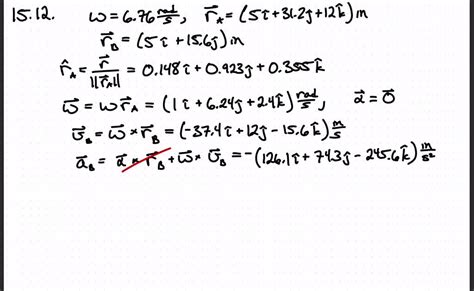 15.12. ω = 6.76 rad/s, r⃗_A = (5î + 31.2ĵ + 12k̂) in
r⃗_B = (5î + 15.6ĵ) in
r̂_A = r⃗/||r⃗_A|| = 0.148î + 0.923ĵ + 0.355k̂
ω⃗ = ω r̂_A = (1î + 6.24ĵ + 2.4k̂) rad/s, α⃗ = 0⃗
v⃗_B = ω⃗ × r⃗_B = (-37.4î + 12ĵ - 15.6k̂) in/s
a⃗_B = α⃗ × r⃗_B + ω⃗ × v⃗_B = -(126.1î + 74.3ĵ - 245.6k̂) in/s²